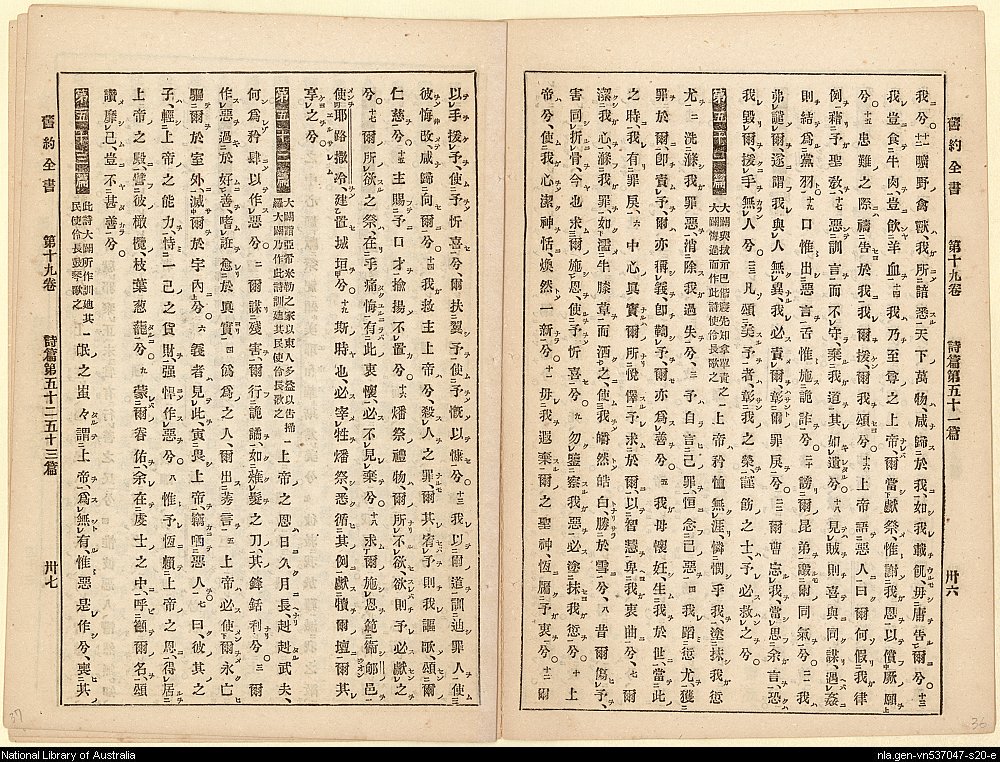 舊約全書 第十九卷 詩篇第五十一篇 卅六
我兮。十一 曠野禽獸、我所諳悉、天下萬物、咸歸於我、如我載飢、毋庸告爾兮。十三
我豈食牛肉、豈飲羊血、十四 我乃至尊之上帝、爾當獻祭、惟謝我恩、以償厥願
兮。十五 患難之際、禱告於我、我爾援、爾我頌兮。十六 上帝語惡人曰、爾何假我律
例、藉予聖敎、十七 惡訓言、而不守、棄我道、其如遺兮。十八 見賊則喜與同謀、遇姦
則結爲黨羽、十九 口惟出惡言、舌惟施詭詐兮。二十 謗爾昆弟、讟爾同氣兮。二一 我
弗譴爾、遂謂我與人無異、我必責爾、暴爾罪戾兮。二二 爾曹忘我、當思余言、恐
我毀爾、援手無人兮。二三 凡頌美予者、彰我之榮、謹飭之士、予必救之兮。
第五十一篇 大闢與拔示巴偕寢、先知拿單責之、大闢悔過而作此詩、使伶長歌之 一 上帝矜恤無涯、憐憫乎我、塗抹我愆
尤、二 洗滌我罪惡、消除我過失兮。三 予自言己罪、恒念己惡、四 我蹈愆尤、獲
罪於爾、卽責予、爾亦稱義、卽鞫予、爾亦爲善兮。五 我母懷妊、生我於世、當此
之時、我有罪戾、六 中心眞實、爾所悅懌、予求爾以智慧、畀我衷曲兮。七 爾
潔我心、滌我罪、如濡牛膝草而洒之、使我皭然皓白、勝於雪兮。八 昔爾傷予、
害同折骨、今也求爾施恩、使予忻喜兮。九 勿鑒察我惡、必塗抹我愆兮。十 上
帝兮、使我心潔神恬、煥然一新兮。十一 毋我遐棄、爾之聖神、恆屬予衷兮。十二 爾
以手援予、使予忻喜兮、爾扶翼予、使予慨以慷兮。十三 我以爾道、訓迪罪人、使
彼悔改、咸歸向爾兮。十四 我救主上帝兮、殺人之罪、爾其宥予、則我謳歌、頌爾
仁慈兮。十五 主賜予口才、揄揚不置兮。十六 燔祭禮物、爾所不欲、欲則予必獻之
兮。十七 爾所欲之祭、在乎痛悔、有此衷懷、必不見棄兮。十八 求爾施恩、範衞郇邑、
使耶路撒冷、建置城垣兮。十九 斯時也、必宰牲燔祭、悉循其例、獻犢爾壇、爾其
享之兮。
第五十二篇 大闢詣亞希米勒之家、以東人多益以告掃羅、大闢乃作此詩訓迪其民、使伶長歌之 一 上帝之恩、日久月長、赳赳武夫、
何爲矜肆以作惡兮。二 爾謀殘害、爾行詭譎、如薙髮之刀、其鋒銛利兮。三 爾
作惡、過於好善、嗜誑、愈於眞實、四 僞爲之人、爾出莠言、五 上帝必使爾永亡、
驅爾於室外、滅爾於宇內兮。六 義者見此、寅畏上帝、竊哂惡人、七 曰、彼其之
子、輕上帝之能力、恃一己之貨財、强悍作惡兮。八 惟予恆賴上帝之恩、得居
上帝之殿、譬彼橄欖、枝葉葱蘢兮。九 蒙爾眷佑、余在虔士之中、呼籲爾名、頌
讚靡已、豈不甚善兮。
第五十三篇 此詩大闢所作、訓迪其民、使伶長鼓琴歌之 一 氓之蚩々、謂上帝爲無有、惟惡是作兮、喪其
舊約全書 第十九卷 詩篇第五十二 五十三篇 卅七
37
36
National Library of Australia
nla.gen-vn537047-s20-e